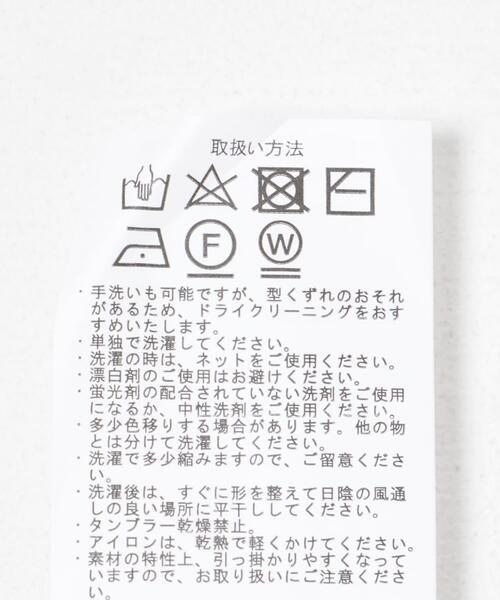 取扱い方法
F W
・手洗いも可能ですが、型くずれのおそれ
があるため、ドライクリーニングをおす
すめいたします。
・単独で洗濯してください。
・洗濯の時は、ネットをご使用ください。
・漂白剤のご使用はお避けください。
・蛍光剤の配合されていない洗剤をご使用
になるか、中性洗剤をご使用ください。
・多少色移りする場合があります。他の物
とは分けて洗濯してください。
・洗濯で多少縮みますので、ご留意くださ
い。
・洗濯後は、すぐに形を整えて日陰の風通
しの良い場所に平干ししてください。
・タンブラー乾燥禁止。
・アイロンは、乾熱で軽くかけてください。
・素材の特性上、引っ掛かりやすくなって
いますので、お取り扱いにご注意くださ
い。